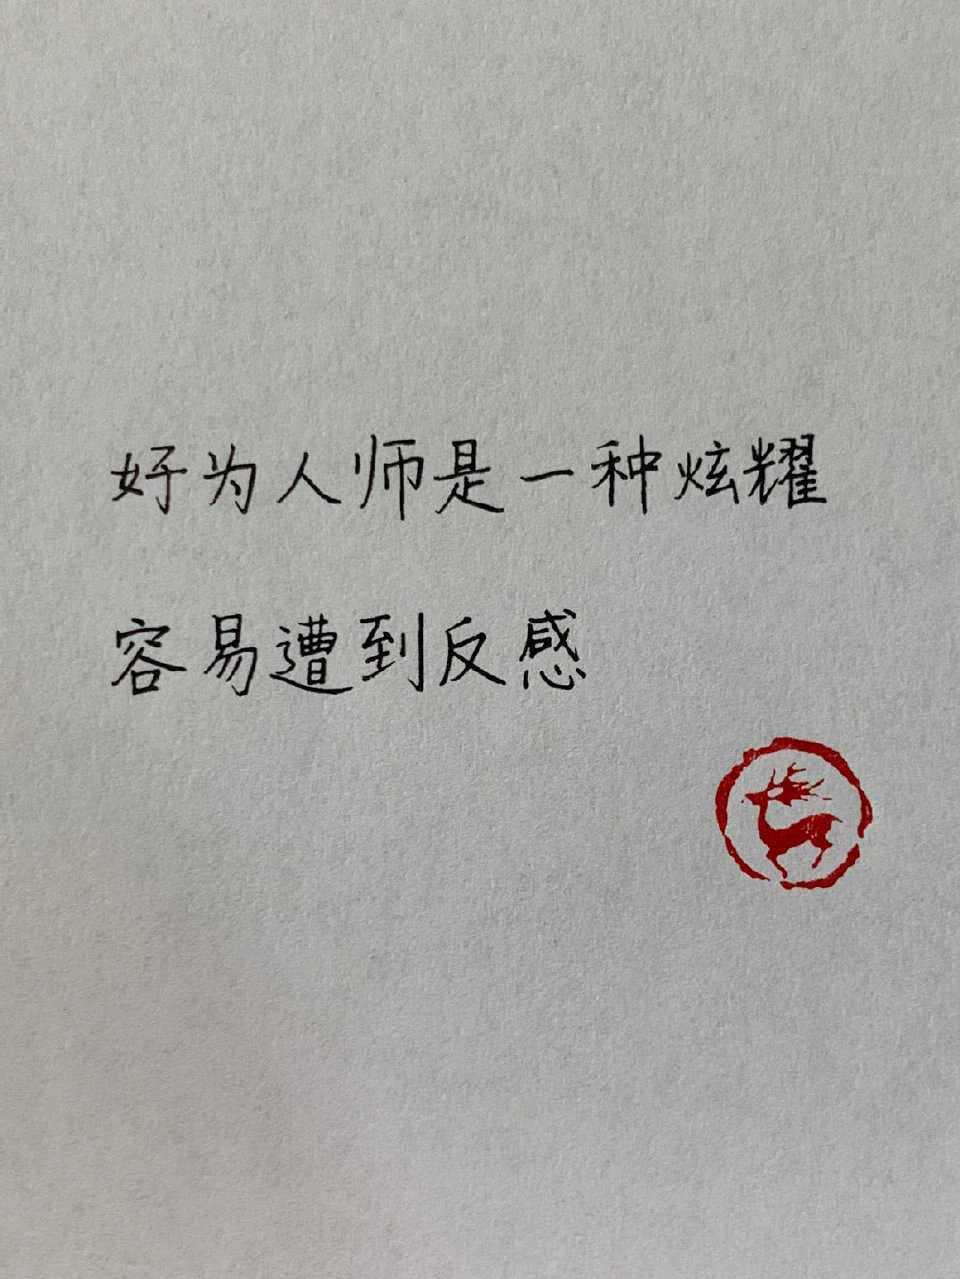 好为人师是一种炫耀
容易遭到反感